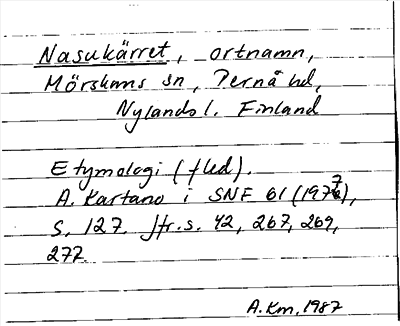 Nasukärret, ortnamn,
Mörskoms sn, Pernå hd,
Nylands l. Finland
Etymologi (fled).
A. Kartano i SNF 61 (1977),
s. 127. Jfr. s. 42, 267, 269,
277.
A.Km, 1987